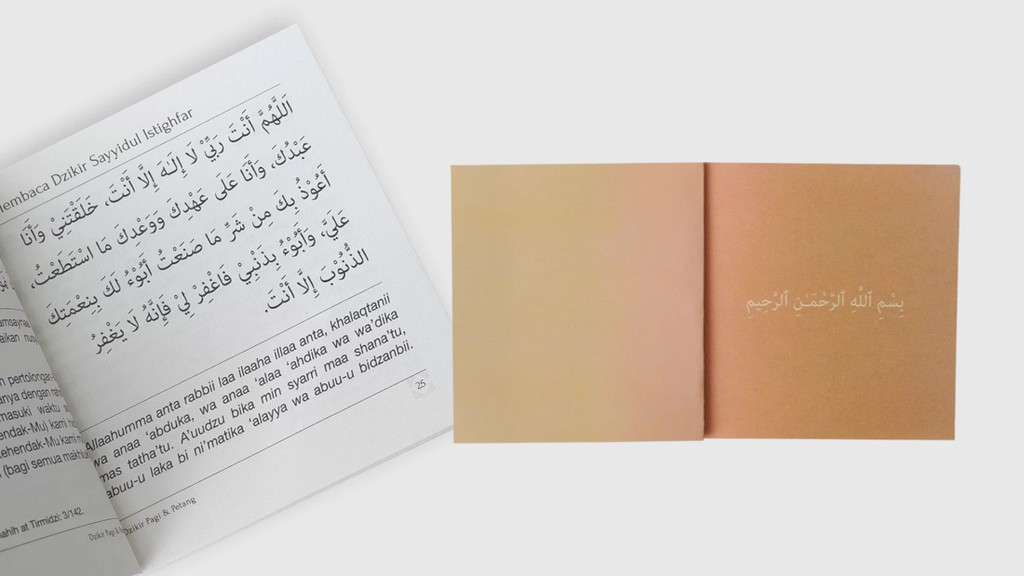 amsaynaa
aikan
n pertolongan
anya dengan
masuki waktu
endak-Mu) kami
ehendak-Mu kami
(bagi semua
ahih at Tirmidzi: 3/142.
Dzikir Pagi &
Membaca Dzikir Sayyidul Istighfar
اَللَّهُمَّ أَنْتَ رَبِّيْ لَا إِلَـٰهَ إِلَّا أَنْتَ، خَلَقْتَنِيْ وَأَنَا
عَبْدُكَ، وَأَنَا عَلَى عَهْدِكَ وَوَعْدِكَ مَا اسْتَطَعْتُ،
أَعُوْذُ بِكَ مِنْ شَرِّ مَا صَنَعْتُ أَبُوْءُ لَكَ بِنِعْمَتِكَ
عَلَيَّ، وَأَبُوْءُ بِذَنْبِيْ فَاغْفِرْ لِيْ فَإِنَّهُ لَا يَغْفِرُ
الذُّنُوْبَ إِلَّا أَنْتَ.
Allaahumma anta rabbii laa ilaaha illaa anta, khalaqtanii
wa anaa 'abduka, wa anaa 'alaa 'ahdika wa wa'dika
mas tatha'tu. A'uudzu bika min syarri maa shana'tu,
abuu-u laka bi ni'matika 'alayya wa abuu-u bidzanbii.
25
Dzikir Pagi & Petang
بِسْمِ ٱللَّهِ ٱلرَّحْمَـٰنِ ٱلرَّحِيمِ